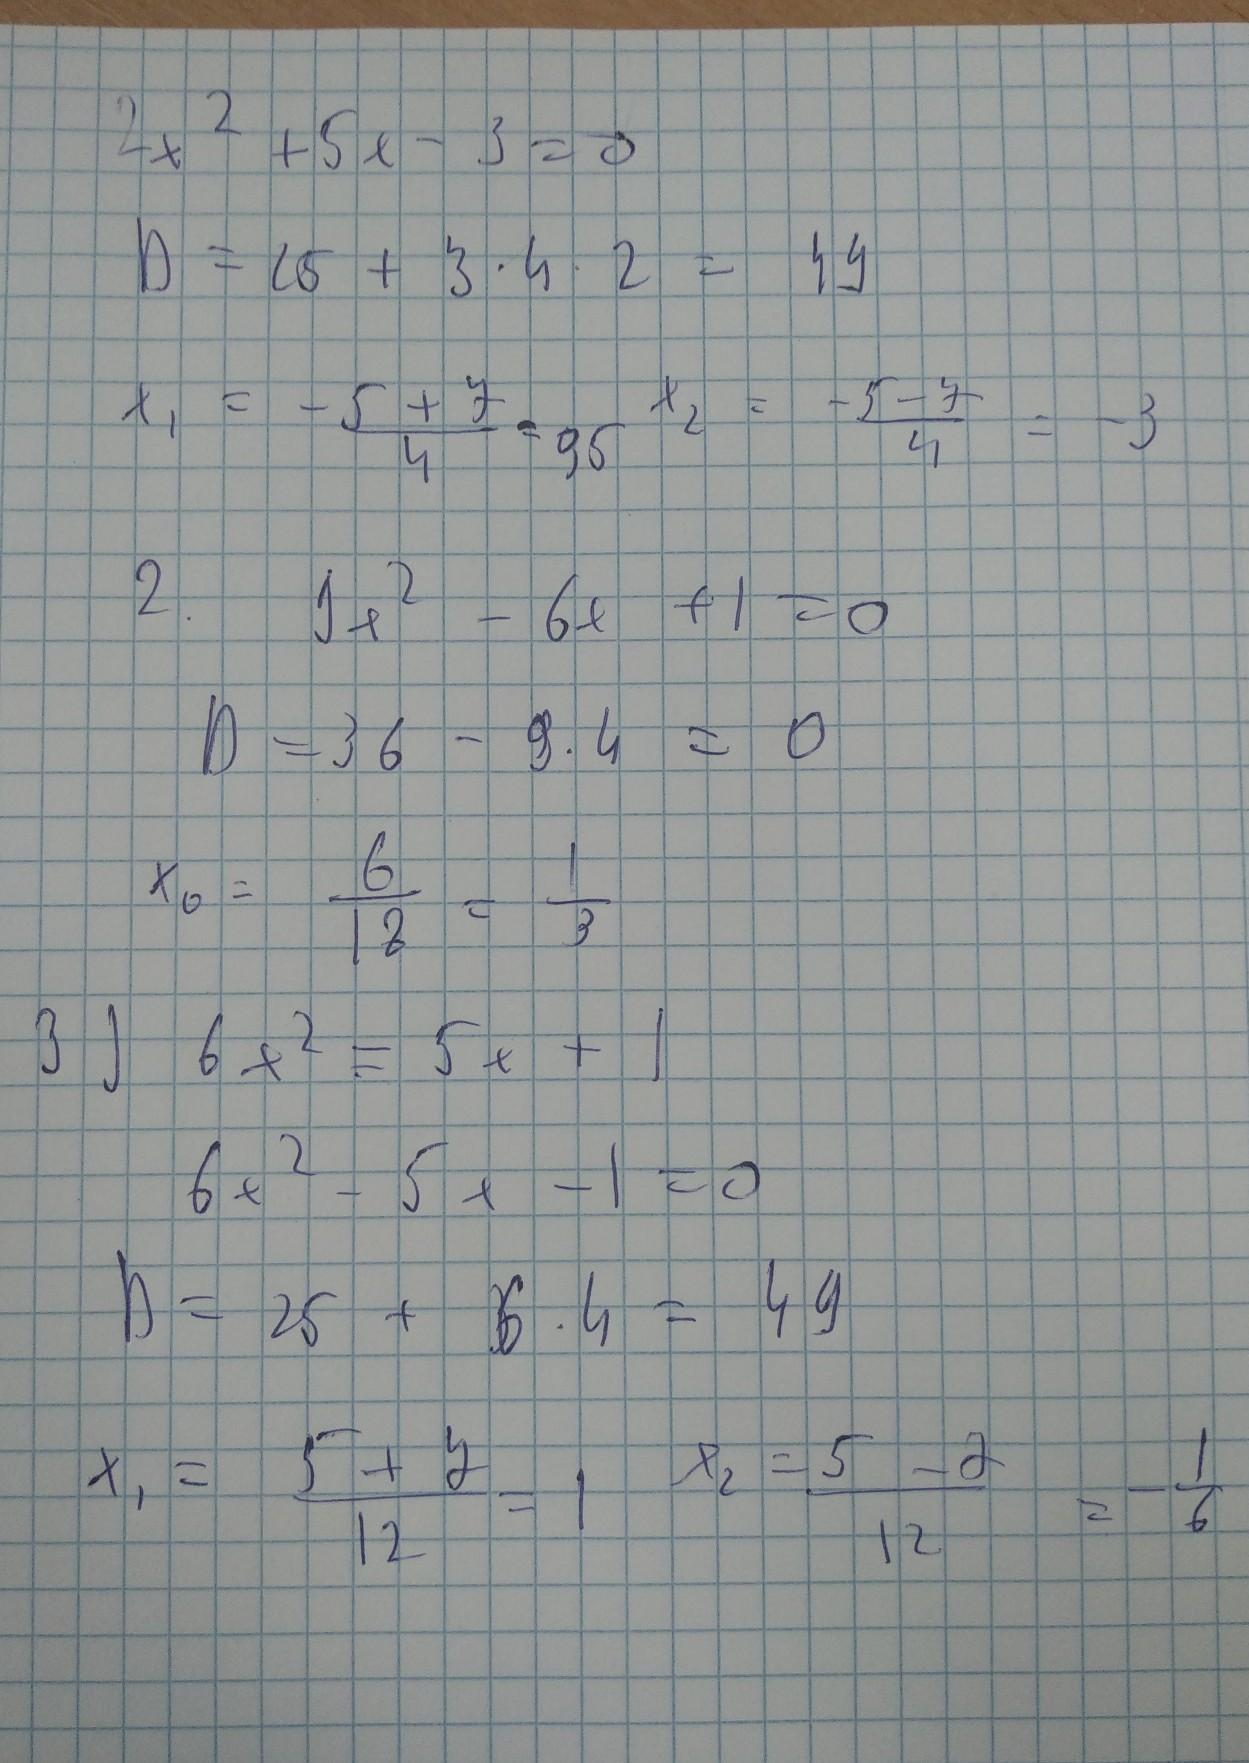 2x² + 5x - 3 = 0
D = 25 + 3·4·2 = 49
x₁ = (-5 + 7)/4 = 0,5 x₂ = (-5 - 7)/4 = -3
2. 9x² - 6x + 1 = 0
D = 36 - 9·4 = 0
x₀ = 6/18 = 1/3
3) 6x² = 5x + 1
6x² - 5x - 1 = 0
D = 25 + 6·4 = 49
x₁ = (5 + 7)/12 = 1 x₂ = (5 - 7)/12 = -1/6